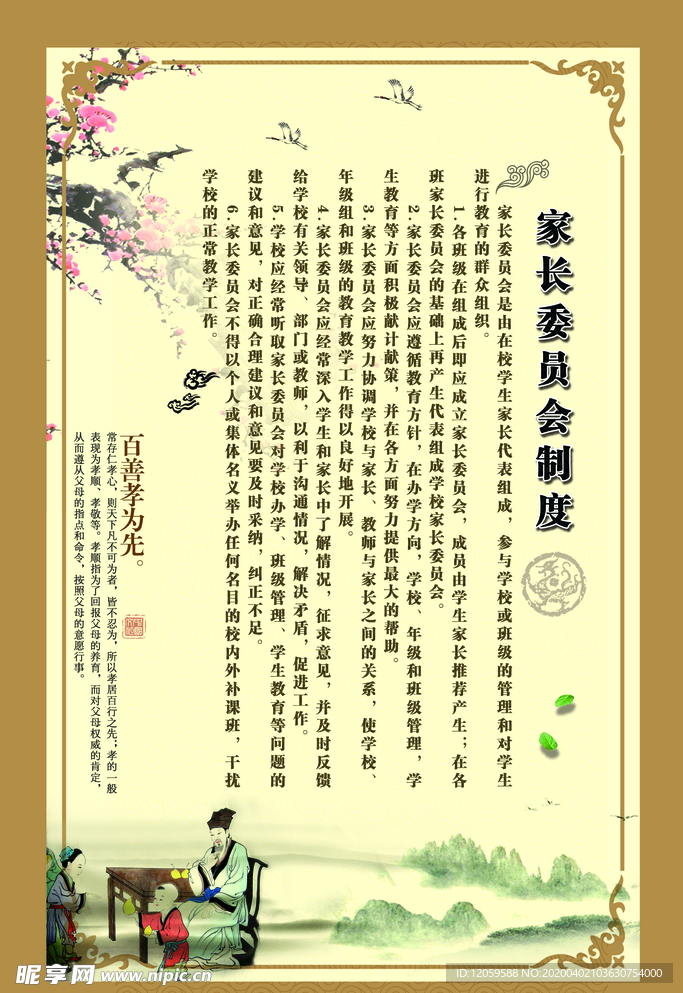 家长委员会制度
家长委员会是由在校学生家长代表组成，参与学校或班级的管理和对学生
进行教育的群众组织。
1.各班级在组成后即应成立家长委员会，成员由学生家长推荐产生；在各
班家长委员会的基础上再产生代表组成学校家长委员会。
2.家长委员会应遵循教育方针，在办学方向，学校、年级和班级管理，学
生教育等方面积极献计献策，并在各方面努力提供最大的帮助。
3.家长委员会应努力协调学校与家长、教师与家长之间的关系，使学校、
年级组和班级的教育教学工作得以良好地开展。
4.家长委员会应经常深入学生和家长中了解情况，征求意见，并及时反馈
给学校有关领导、部门或教师，以利于沟通情况，解决矛盾，促进工作。
5.学校应经常听取家长委员会对学校办学、班级管理、学生教育等问题的
建议和意见，对正确合理建议和意见要及时采纳，纠正不足。
6.家长委员会不得以个人或集体名义举办任何名目的校内外补课班，干扰
学校的正常教学工作。
百善孝为先。
常存仁孝心，则天下凡不可为者，皆不忍为，所以孝居百行之先；孝的一般
表现为孝顺、孝敬等。孝顺指为了回报父母的养育，而对父母权威的肯定，
从而遵从父母的指点和命令，按照父母的意愿行事。
昵享网 www.nipic.cn
ID:12059588 NO:20200402103630754000